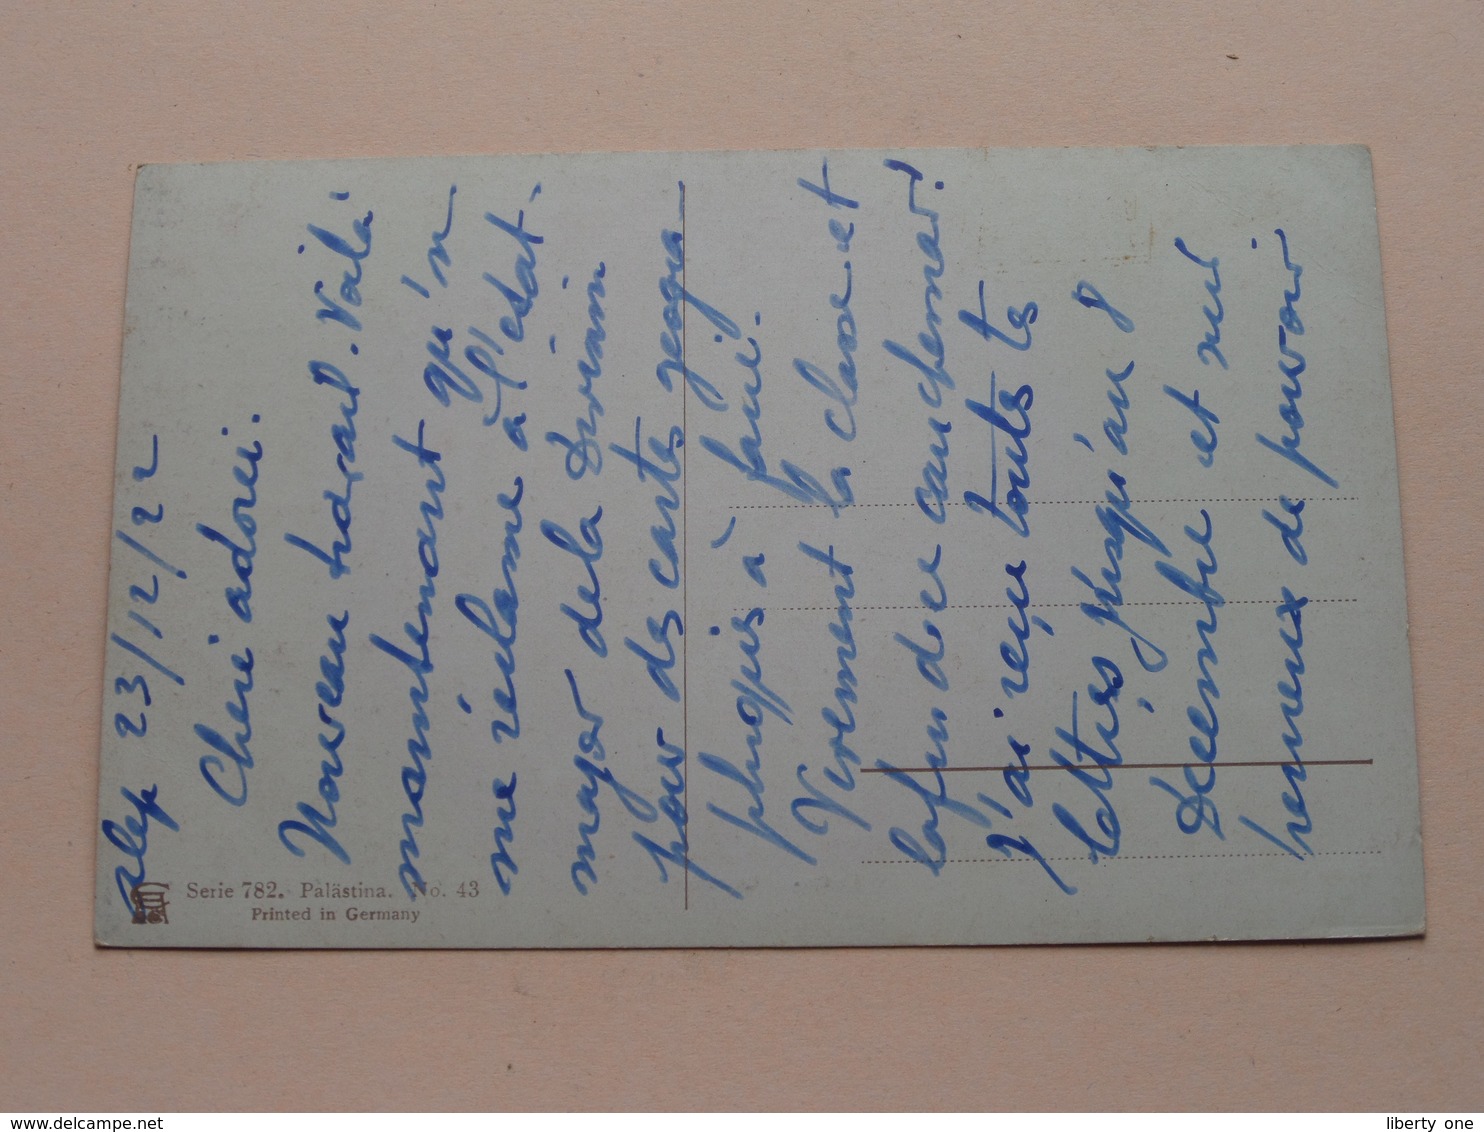 Alep 23/12/22
Cheri adoré.
Nouveau travail. Voila
maintenant qu'on
me réclame à l'etat-
major de la Division
pour des cartes geogra
phiques à faire.
Vivement la classe et
la fin de ce cauchemar!
J'ai reçu toutes tes
lettres jusqu'au 8
Decembre et suis
heureux de pouvoir
Serie 782. Palästina. No. 43
Printed in Germany
liberty one